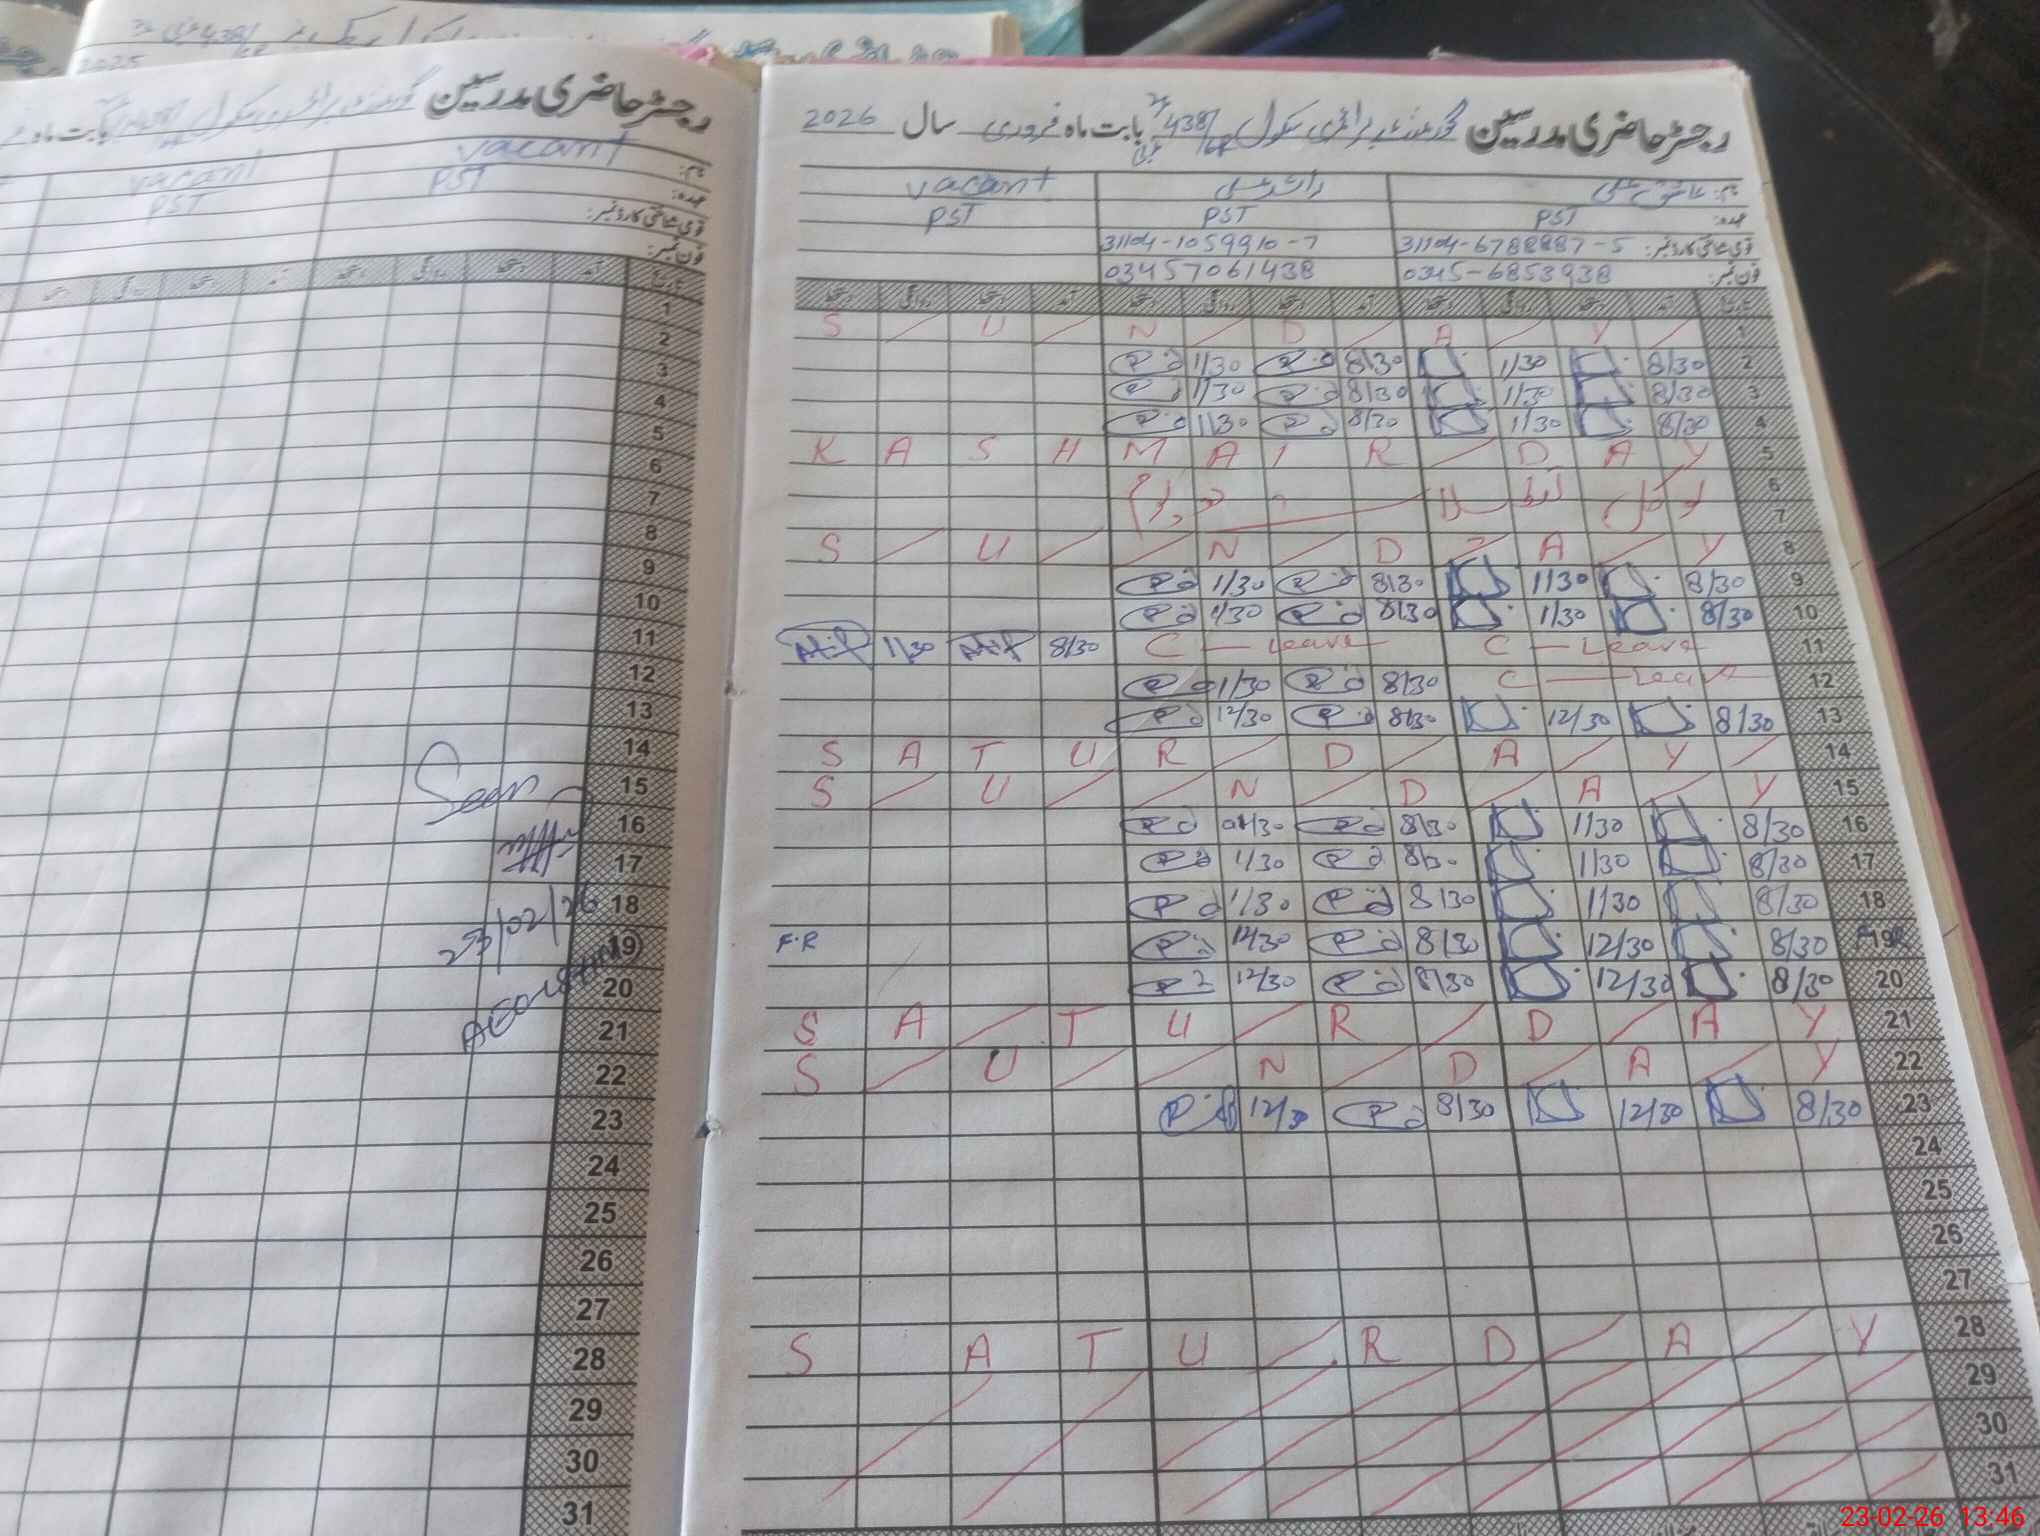 رجسٹر حاضری مدرسین گورنمنٹ پرائمری سکول 438/ بابت ماہ فروری سال 2026
نام: عاشق علی راشد علی vacant
عہدہ: PST PST PST
قومی شناختی کارڈ نمبر: 31104-6788887-5 31104-1059910-7
فون نمبر: 0345-6853938 03457061438
S / U / N / D / A / Y / 1
1/30 8/30 1/30 8/30 2
1/30 8/30 1/30 8/30 3
1/30 8/30 1/30 8/30 4
K A S H M A I R / D A Y 5
لوکل 6
7
S / U / / N / D / A / Y 8
1/30 8/30 1/30 8/30 9
1/30 8/30 1/30 8/30 10
Atif 1/30 Atif 8/30 C - Leave C - Leave 11
1/30 8/30 C - Leave 12
12/30 8/30 12/30 8/30 13
S A T U R / D / A / Y / 14
S / U / / N / D / A / Y 15
01/30 8/30 1/30 8/30 16
1/30 8/30 1/30 8/30 17
1/30 8/30 1/30 8/30 18
F.R 12/30 8/30 12/30 8/30 19
12/30 8/30 12/30 8/30 20
S A / T U / R / D / A Y 21
S / U / / N / D / A / Y 22
12/30 8/30 12/30 8/30 23
24
25
26
27
S A T U / R D / A / Y 28
29
30
31
رجسٹر حاضری مدرسین گورنمنٹ پرائمری سکول بابت ماہ
نام: vacant vacant
عہدہ: PST PST
قومی شناختی کارڈ نمبر:
فون نمبر:
1
2
3
4
5
6
7
8
9
10
11
12
13
14
Seen 15
16
17
23/02/26 18
19
20
21
22
23
24
25
26
27
28
29
30
31
2025
23-02-26 13:46